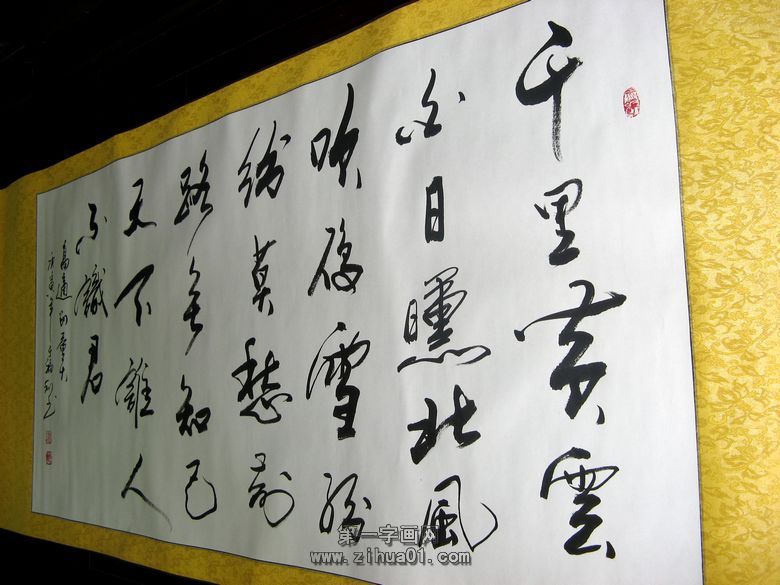 千里黄雲
白日曛北風
吹雁雪紛
紛莫愁前
路無知己
天下誰人
不識君
高適別董大
庚寅年
第一字画网
www.zihua01.com